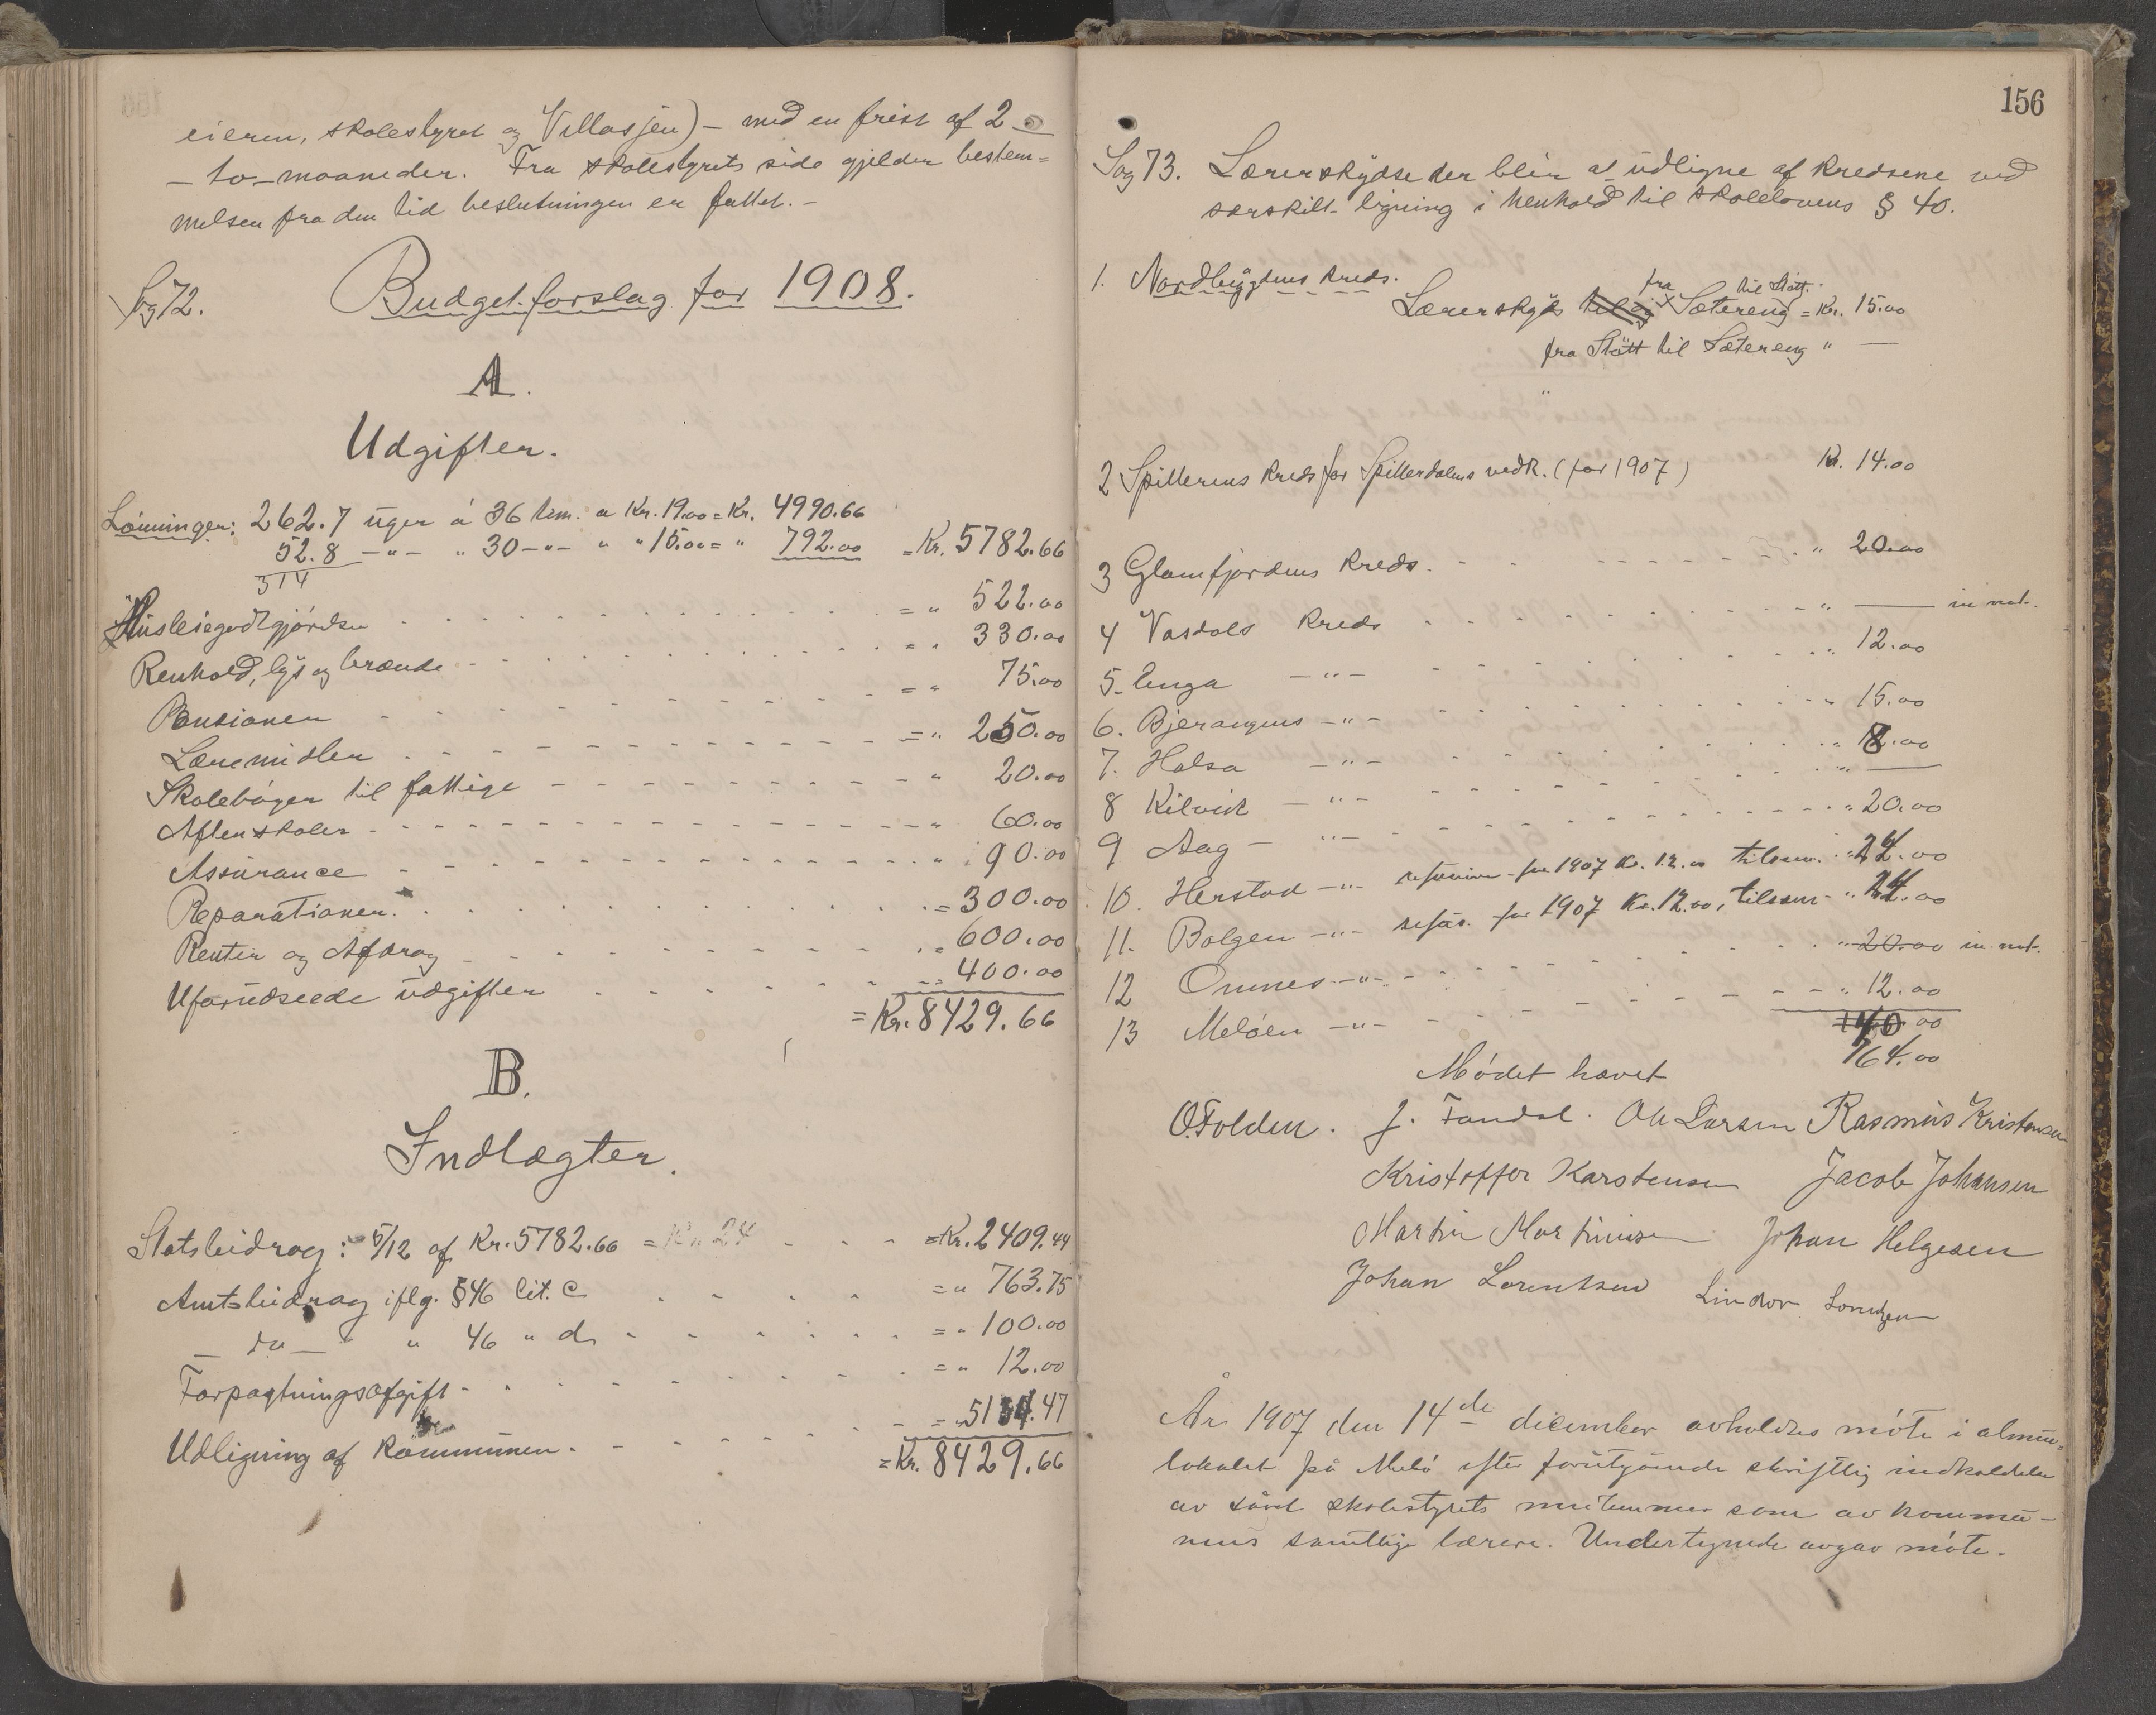 eieren, skolestyret og Villasjen) – med en frist af 2
– to – maaneder. Fra skolestyrets side gjelder bestem=
melsen fra den tid beslutningen er fattet. –
Sag 72. Budgetforslag for 1908.
A.
Udgifter.
Lønninger: 262.7 uger à 36 tim. a Kr. 19.00 = Kr. 4990.66
52.8 –"– " 30 –"– " " 15.00 = " 792.00 = Kr. 5782.66
314
Husleiegodtgjørelse = " 522.00
Renhold, lys og brænde = " 330.00
Pensioner = " 75.00
Læremidler = " 250.00
Skolebøger til fattige " 20.00
Aftenskoler " 60.00
Assurance " 90.00
Reparationer = 300.00
Renter og Afdrag = 600.00
Uforudseede udgifter = 400.00
= Kr. 8429.66
B.
Indtægter.
Statsbidrag: 5/12 af Kr. 5782.66 = Kr. 24 = Kr. 2409.44
Amtsbidrag iflg. § 46 lit. c = " 763.75
– do – " " 46 " d = " 100.00
Forpagtningsafgift = " 12.00
Udligning af kommunen = " 5144.47
= Kr. 8429.66
156
Sag 73. Lærerskydse der blir at udligne af kredsene ved
særskilt ligning i henhold til skolelovens § 40.
1. Nordbygdens kreds.
Lærerskyds til og fra Sætereng til Støtt = Kr. 15.00
fra Støtt til Sætereng " —
"
2 Spillerens kreds for Spillerdalens vedk. (for 1907) Kr. 14.00
3 Glomfjordens kreds. " 20.00
4 Vasdals kreds " — in nat.
5. Enga –"– " 12.00
6. Bjerangens –"– " 15.00
7. Halsa –"– " 18.00
8 Kilvik –"– " —
9 Aag –"– " 20.00
10. Herstad –"– refusion for 1907 Kr. 12.00 tilsam. " 24.00
11. Bolgen –"– refus. for 1907 Kr. 12.00, tilsam– " 24.00
12 Ornnes –"– " 20.00 in nat.
13 Meløen –"– " 12.00
140.00
164.00
Mødet hævet
O. Folden. J. Fondal. Ole Larsen Rasmus Kristensen
Kristoffer Karstensen Jacob Johansen
Martin Martinusen Johan Helgesen
Johan Lorentsen Lindor Lorntzen
År 1907 den 14de december avholdtes møte i almu=
lokalet på Melø efter forutgående skriftlig indkaldelse
av såvel skolestyrets medlemmer som av kommu–
nens samtlige lærere. Undertegnede avgav møte.